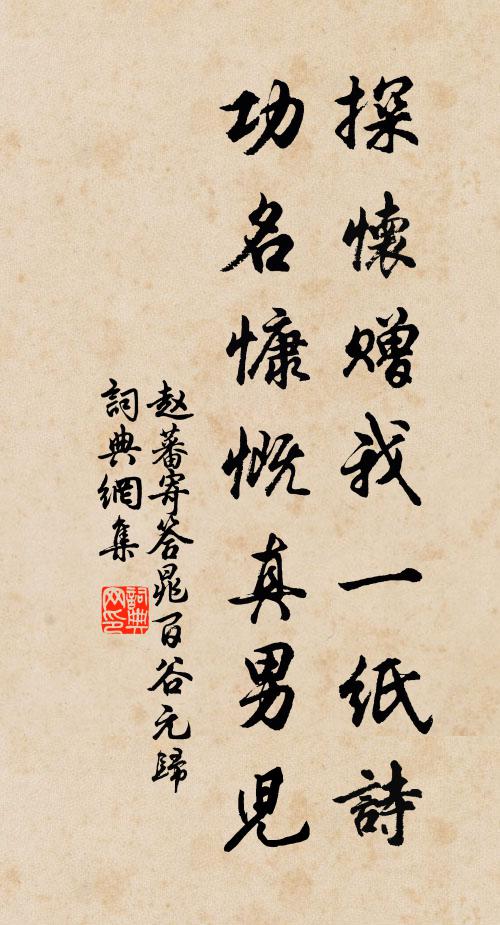 探懷贈我一紙詩
功名慷慨真男兒
赵蕃寄答晁百谷元歸
詞典網集
詞典
网印